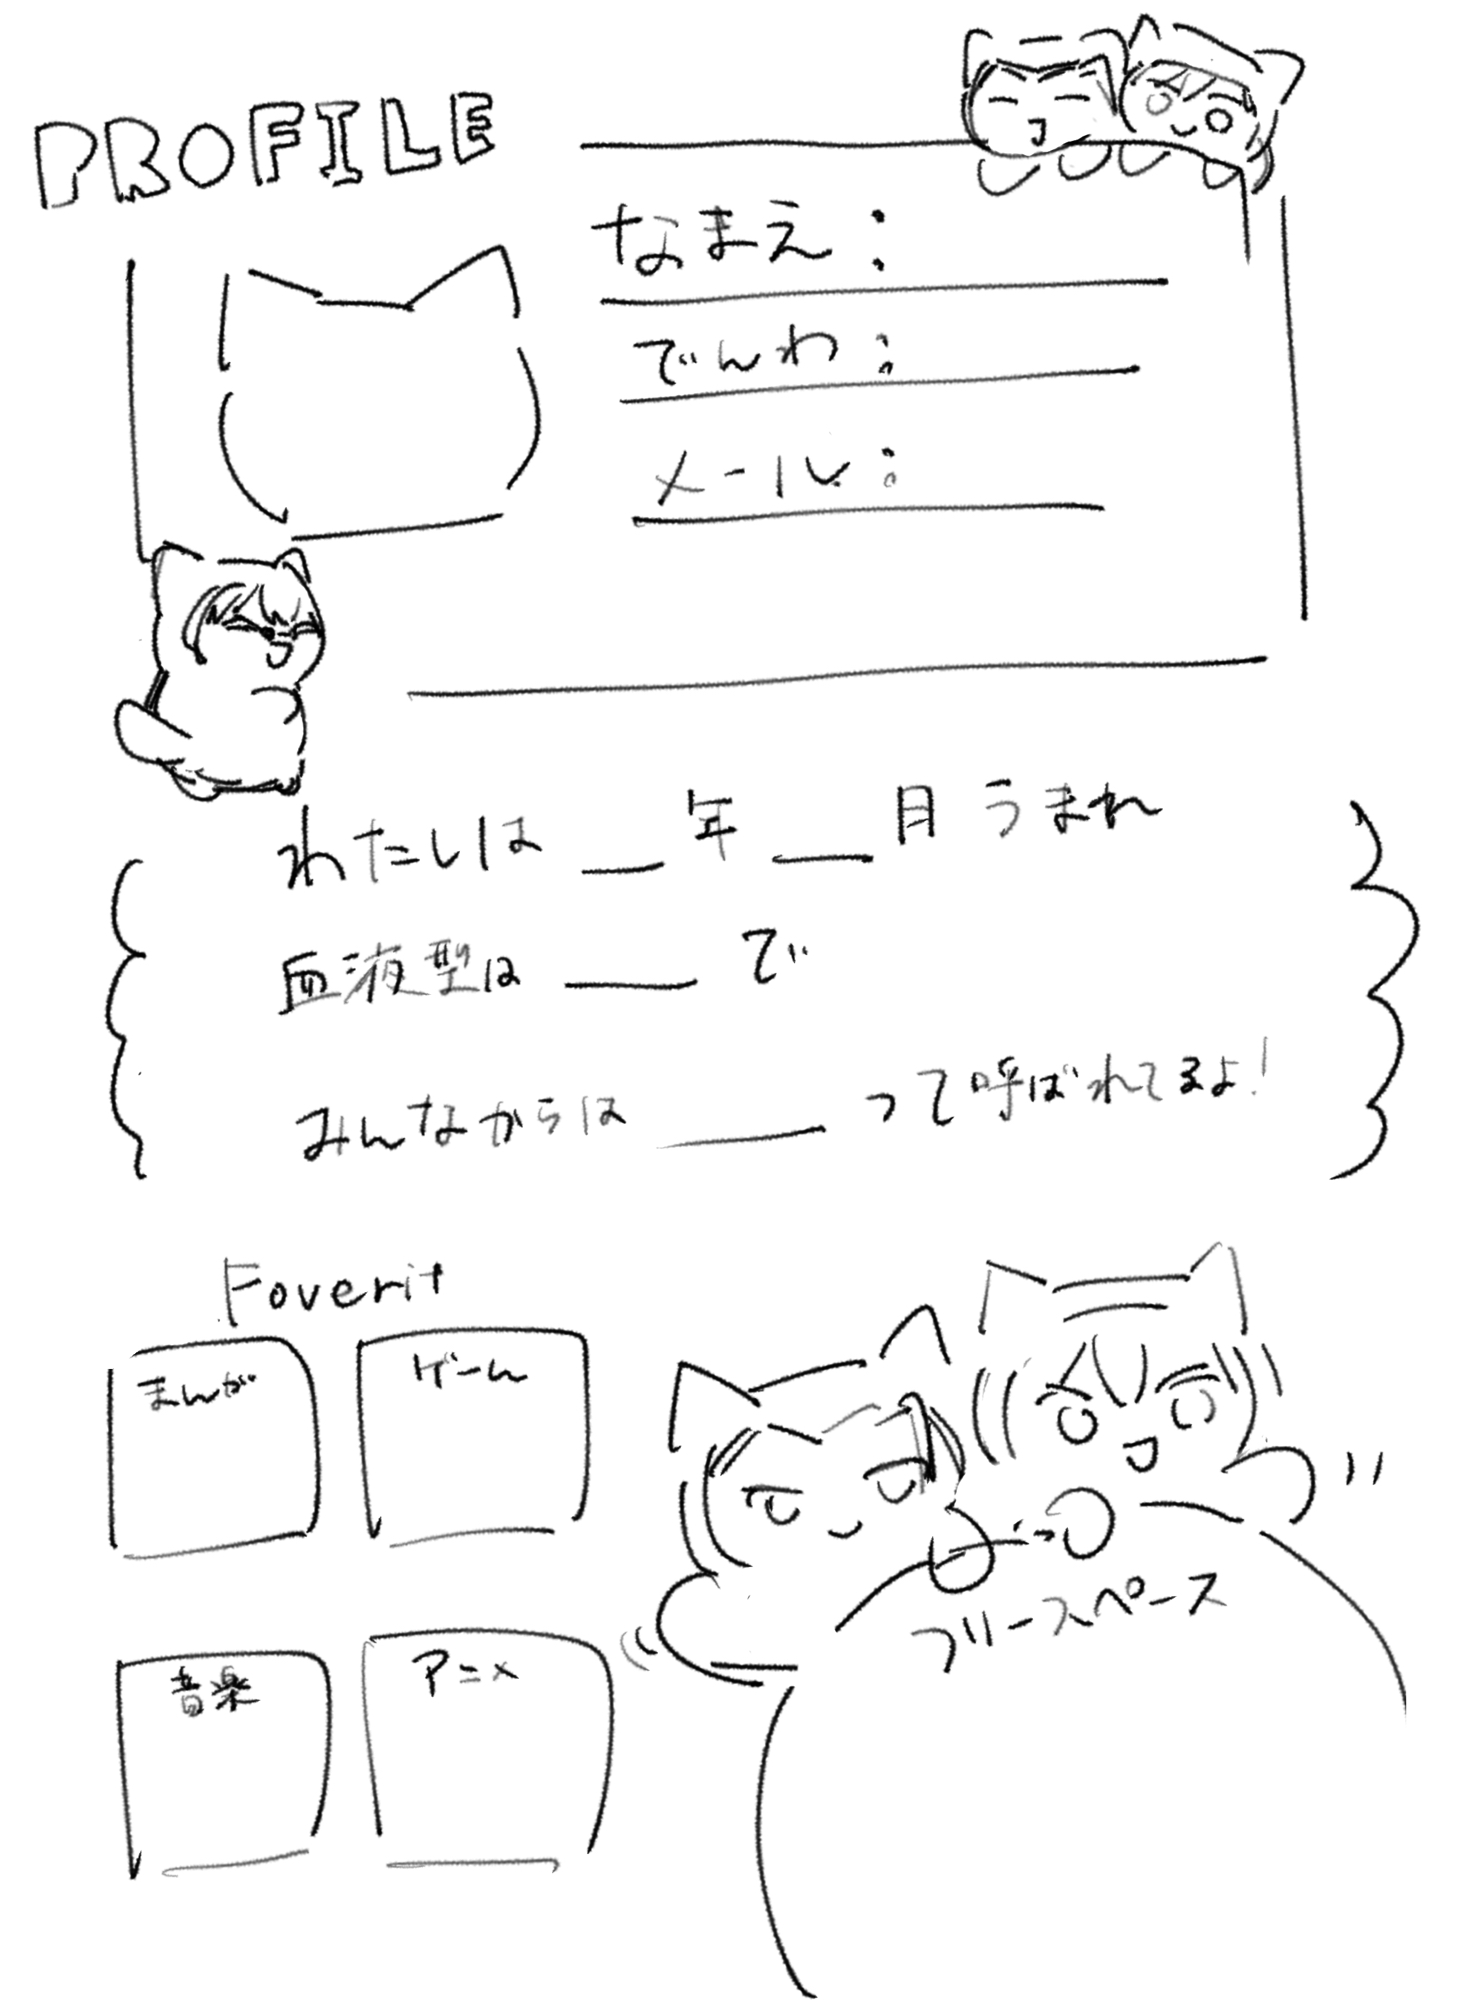 PROFILE
なまえ:
でんわ:
メール:
わたしは __ 年 __ 月うまれ
血液型は __ で
みんなからは __ って呼ばれてるよ!
Foverit
まんが
ゲーム
音楽
アニメ
フリースペース